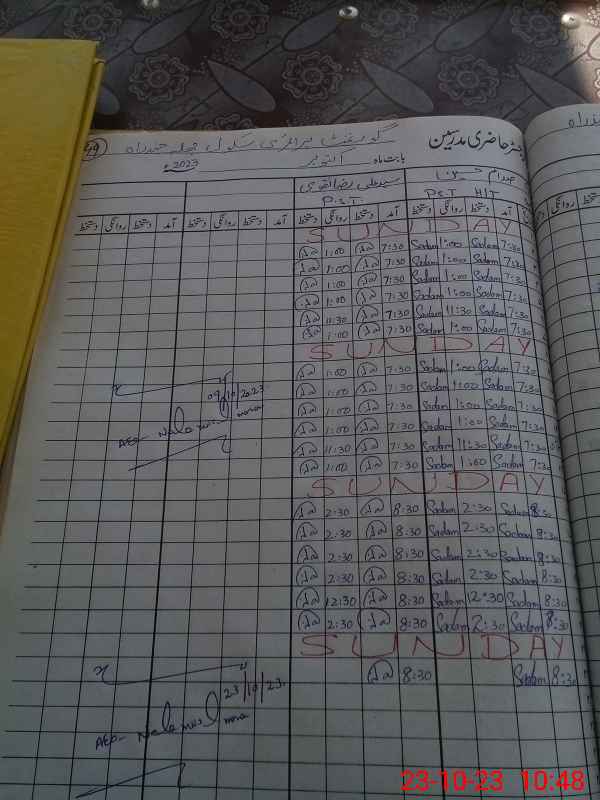 49
رجسٹر حاضری مدرسین
گورنمنٹ پرائمری سکول
بابت ماہ اکتوبر 2023ء
صدام حسین سید علی رضا نقوی
P.S.T P.S.T HIT
آمد دستخط روانگی دستخط آمد دستخط روانگی دستخط آمد دستخط روانگی دستخط آمد دستخط روانگی دستخط
SUNDAY
1:00 7:30 Sadam 1:00 Sadam 7:30
1:00 7:30 Sadam 1:00 Sadam 7:30
1:00 7:30 Sadam 1:00 Sadam 7:30
1:00 7:30 Sadam 1:00 Sadam 7:30
11:30 7:30 Sadam 11:30 Sadam 7:30
1:00 7:30 Sadam 1:00 Sadam 7:30
SUNDAY
1:00 7:30 Sadam 1:00 Sadam 7:30
1:00 7:30 Sadam 1:00 Sadam 7:30
1:00 7:30 Sadam 1:00 Sadam 7:30
1:00 7:30 Sadam 1:00 Sadam 7:30
11:30 7:30 Sadam 11:30 Sadam 7:30
1:00 7:30 Sadam 1:00 Sadam 7:30
09/10/2023
AEO-
SUNDAY
2:30 8:30 Sadam 2:30 Sadam 8:30
2:30 8:30 Sadam 2:30 Sadam 8:30
2:30 8:30 Sadam 2:30 Sadam 8:30
2:30 8:30 Sadam 2:30 Sadam 8:30
12:30 8:30 Sadam 12:30 Sadam 8:30
2:30 8:30 Sadam 2:30 Sadam 8:30
SUNDAY
8:30 Sadam 8:30
23/10/23
AEO-
23-10-23 10:48